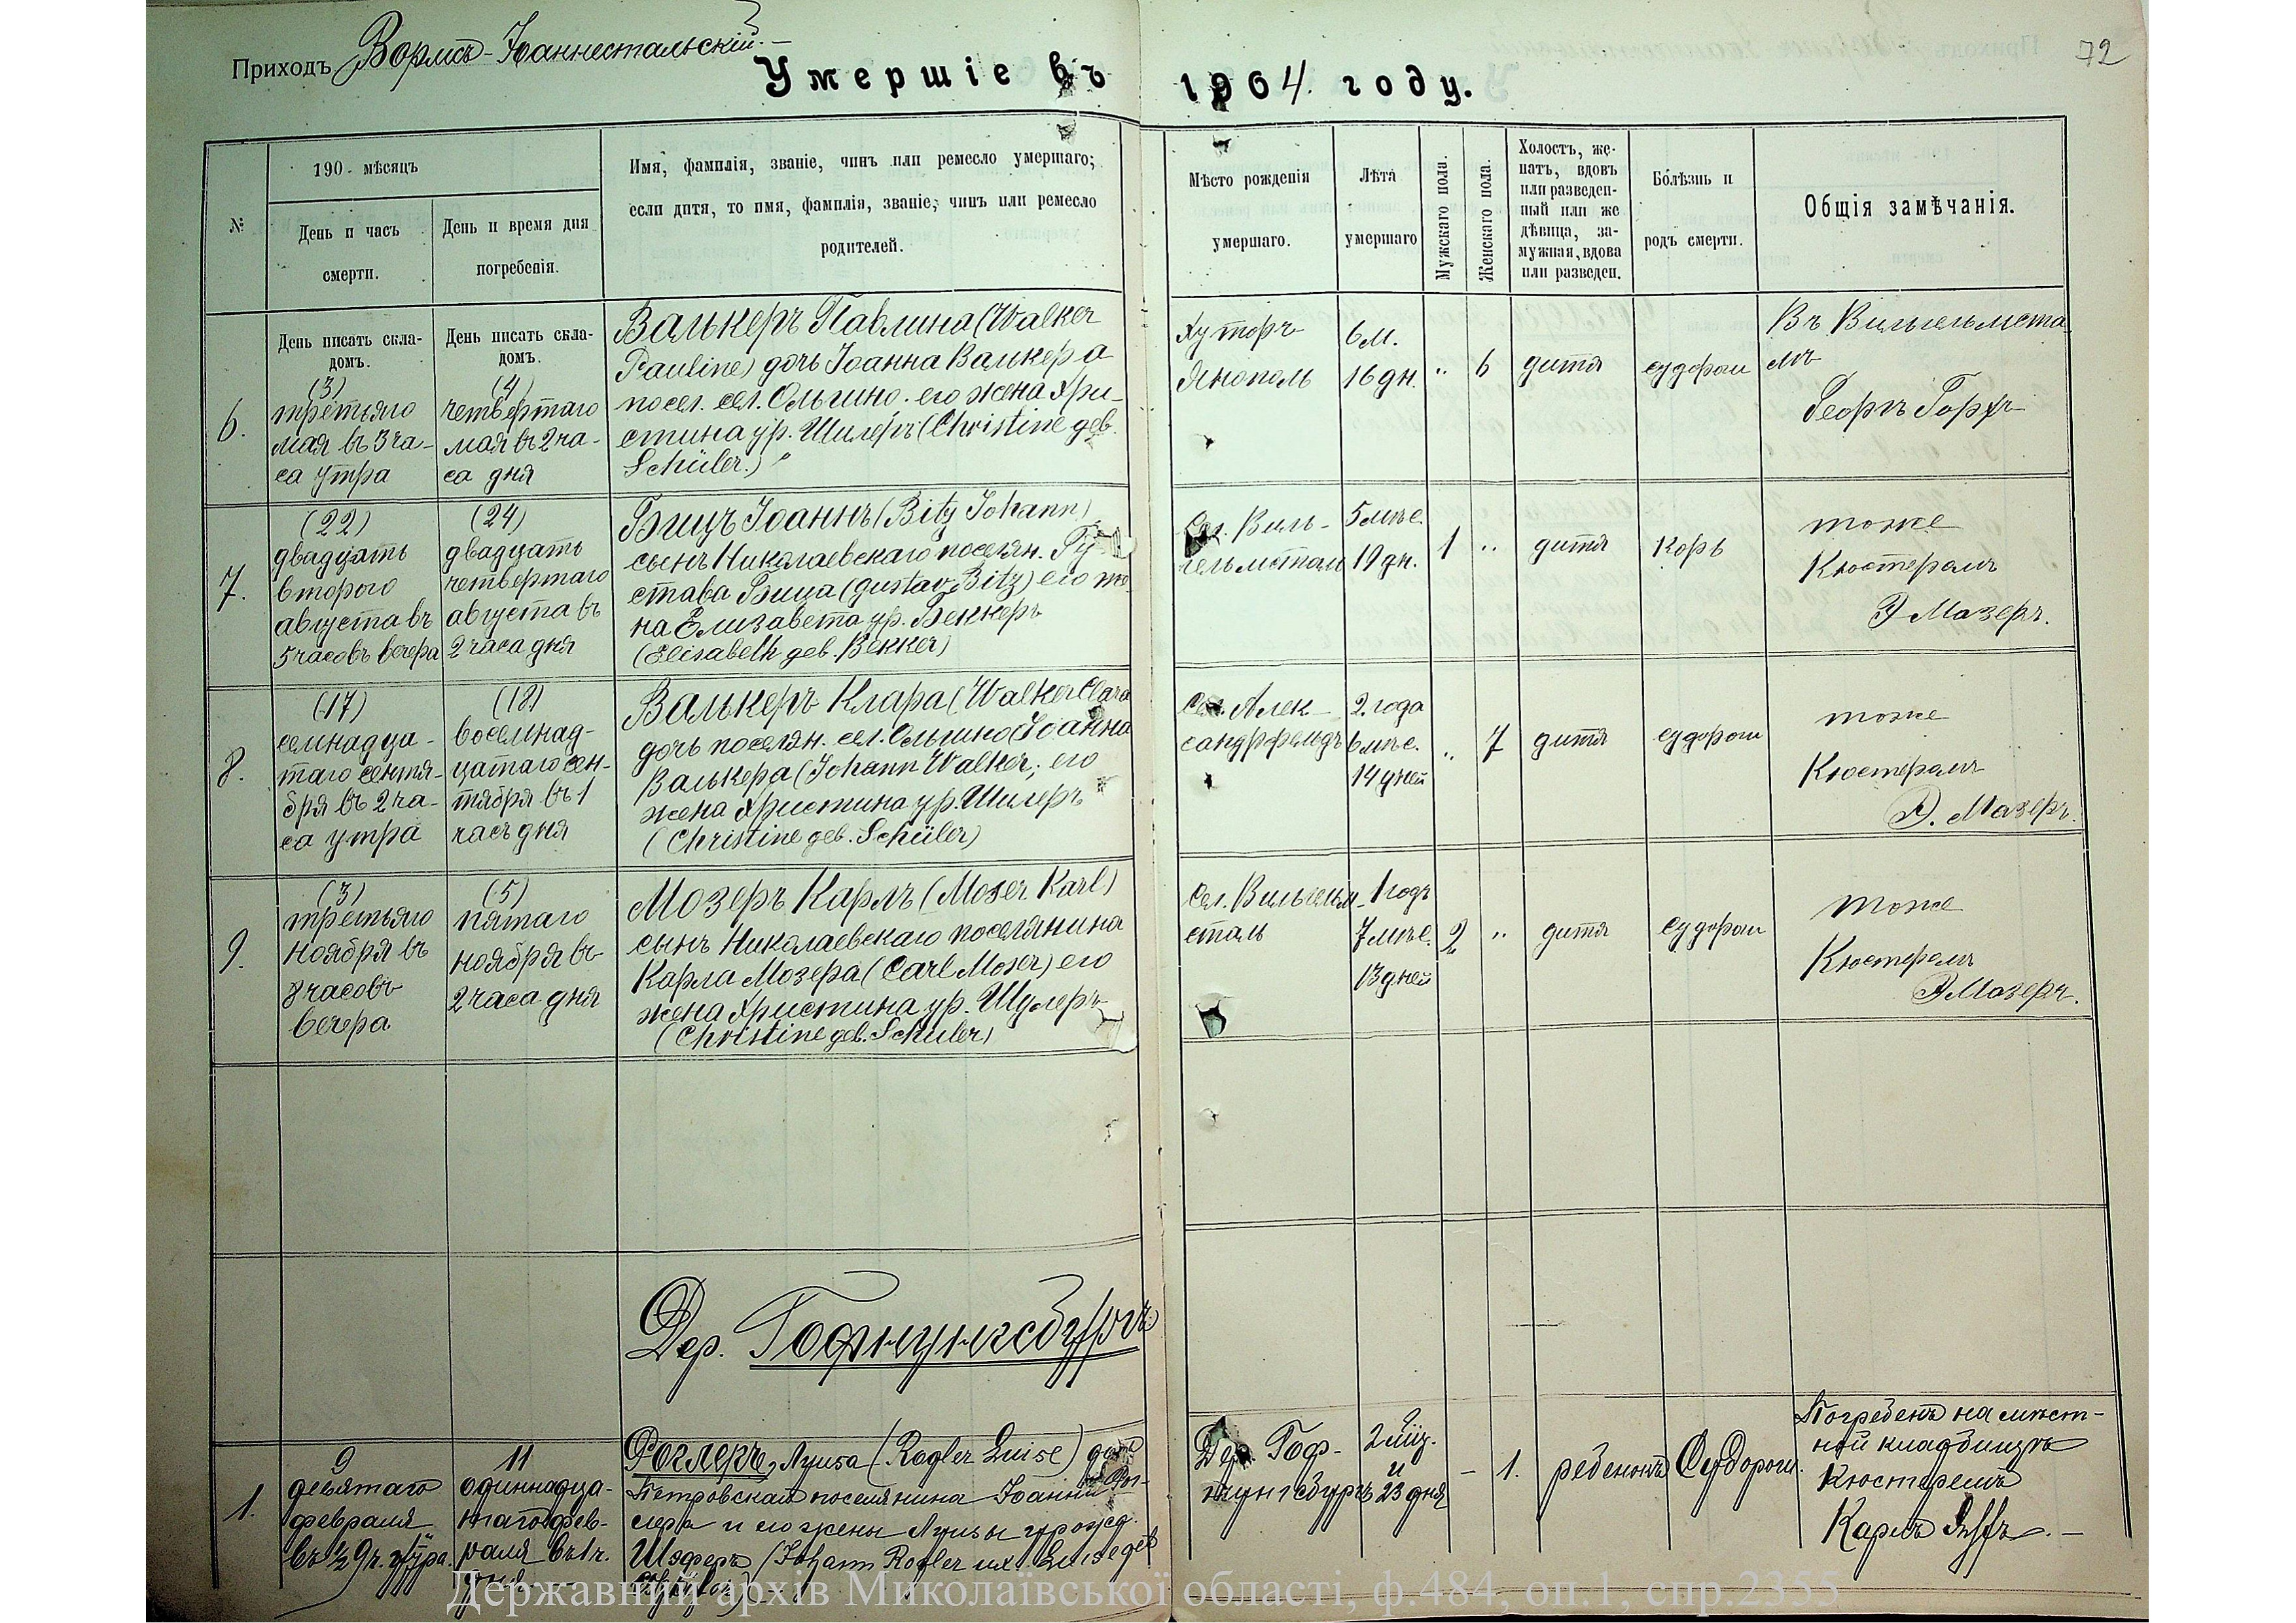 Приходъ Вормсъ-Іоаннестальскій.
72
Умершіе въ 1904. году.
№
190 мѣсяцъ
День и часъ
смерти.
День и время дня
погребенія.
Имя, фамилія, званіе, чинъ или ремесло умершаго;
если дитя, то имя, фамилія, званіе, чинъ или ремесло
родителей.
Мѣсто рожденія
умершаго.
Лѣта
умершаго
Мужскаго пола.
Женскаго пола.
Холостъ, же-
натъ, вдовъ
или разведен-
ный или же
дѣвица, за-
мужняя, вдова
или разведен.
Болѣзнь и
родъ смерти.
Общія замѣчанія.
День писать скла-
домъ.
День писать скла-
домъ.
6.
(3)
третьяго
мая въ 3 ча-
са утра
(4)
четвертаго
мая въ 2 ча-
са дня
Валькеръ Павлина (Walker
Pauline) дочь Іоанна Валькера
посел. сел. Ольгино. его жена Хри-
стина ур. Шилеръ (Christine geb.
Schüler.)
Хуторъ
Янополь
6 м.
16 дн.
"
6
дитя
судороги
Въ Вильгельмста-
лѣ
Георгъ Горхъ
7.
(22)
двадцать
второго
августа въ
5 часовъ вечера
(24)
двадцать
четвертаго
августа въ
2 часа дня
Бицъ Іоаннъ (Bitz Johann)
сынъ Николаевскаго поселян. Гу-
става Бица (Gustav Bitz) его же-
на Елизавета ур. Беккеръ
(Elisabeth geb. Bekker)
Сел. Виль-
гельмсталь
5 мѣс.
19 дн.
1
"
дитя
корь
тоже
Кюстеромъ
Э Мазеръ.
8.
(17)
семнадца-
таго сентя-
бря въ 2 ча-
са утра
(18)
восемнад-
цатаго сен-
тября въ 1
часъ дня
Валькеръ Клара (Walker Clara
дочь поселян. сел. Ольгино Іоанна
Валькера (Johann Walker; его
жена Христина ур. Шилеръ
(Christine geb. Schüler)
Сел. Алек-
сандрфельдъ
2. года
6 мѣс.
14 дней
"
7
дитя
судороги
тоже
Кюстеромъ
Э. Мазеръ.
9.
(3)
третьяго
ноября въ
8 часовъ
вечера
(5)
пятаго
ноября въ
2 часа дня
Мозеръ Карлъ (Moser Karl)
сынъ Николаевскаго поселянина
Карла Мозера (Carl Moser) его
жена Христина ур. Шулеръ
(Christine geb. Schuler)
Сел. Вильгельм-
сталь
1 годъ
7 мѣс.
13 дней
2
"
дитя
судороги
тоже
Кюстеромъ
Э Мазеръ.
Дер. Гофнунгсбургъ.
1.
9
девятаго
февраля
въ ½ 9 ч. утра.
11
одиннадца-
таго фев-
раля въ 1 ч.
дня
Роглеръ, Луиза (Rogler Luise) дочь
Петровскаго поселянина Іоанна Рог-
лера и его жены Луизы урожд.
Шэферъ (Johann Rogler ux. Luise geb
Дер. Гоф-
нунгсбургъ
2 мѣц.
и
23 дня
-
1.
ребенокъ
Судороги.
Погребенъ на мѣст-
ной кладбищѣ
Кюстеромъ
Карлъ
Державний архів Миколаївської області, ф.484, оп.1, спр.2355